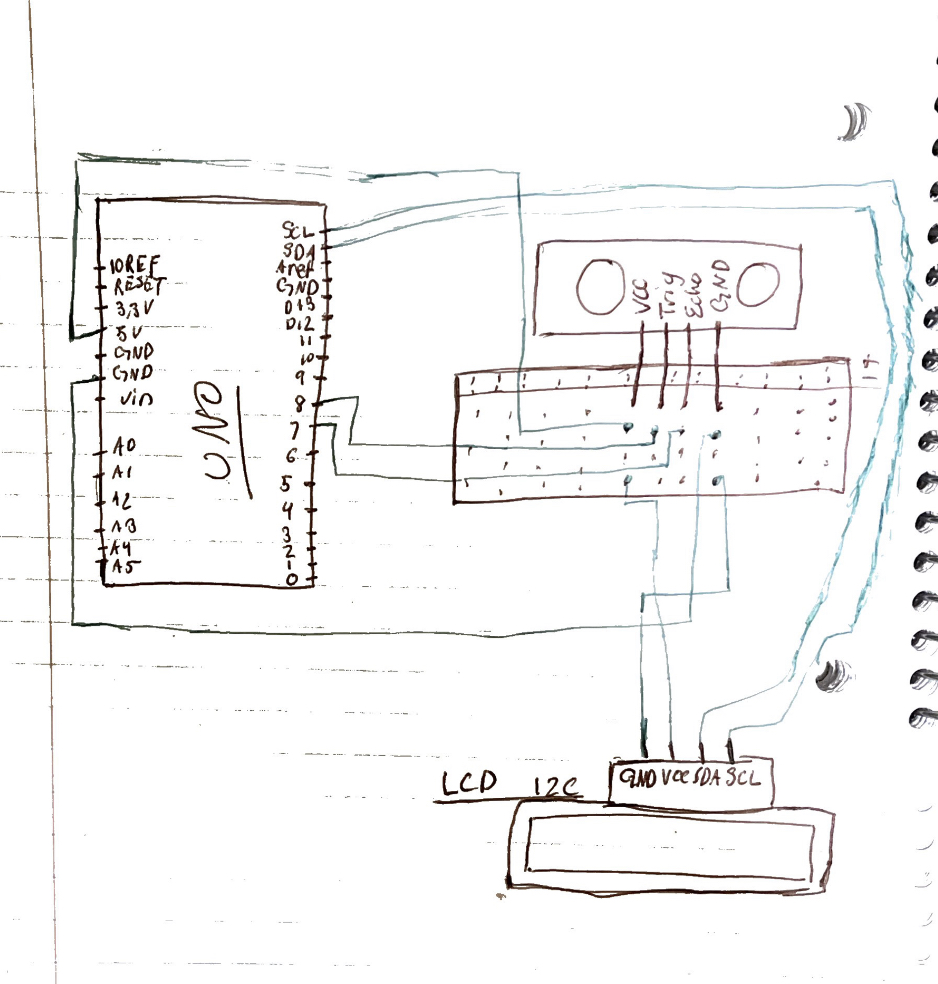 IOREF
RESET
3,3V
5V
GND
GND
Vin
A0
A1
A2
A3
A4
A5
UNO
SCL
SDA
Aref
GND
D13
D12
11
10
9
8
7
6
5
4
3
2
1
0
VCC
Trig
Echo
GND
17
LCD I2C
GND VCC SDA SCL